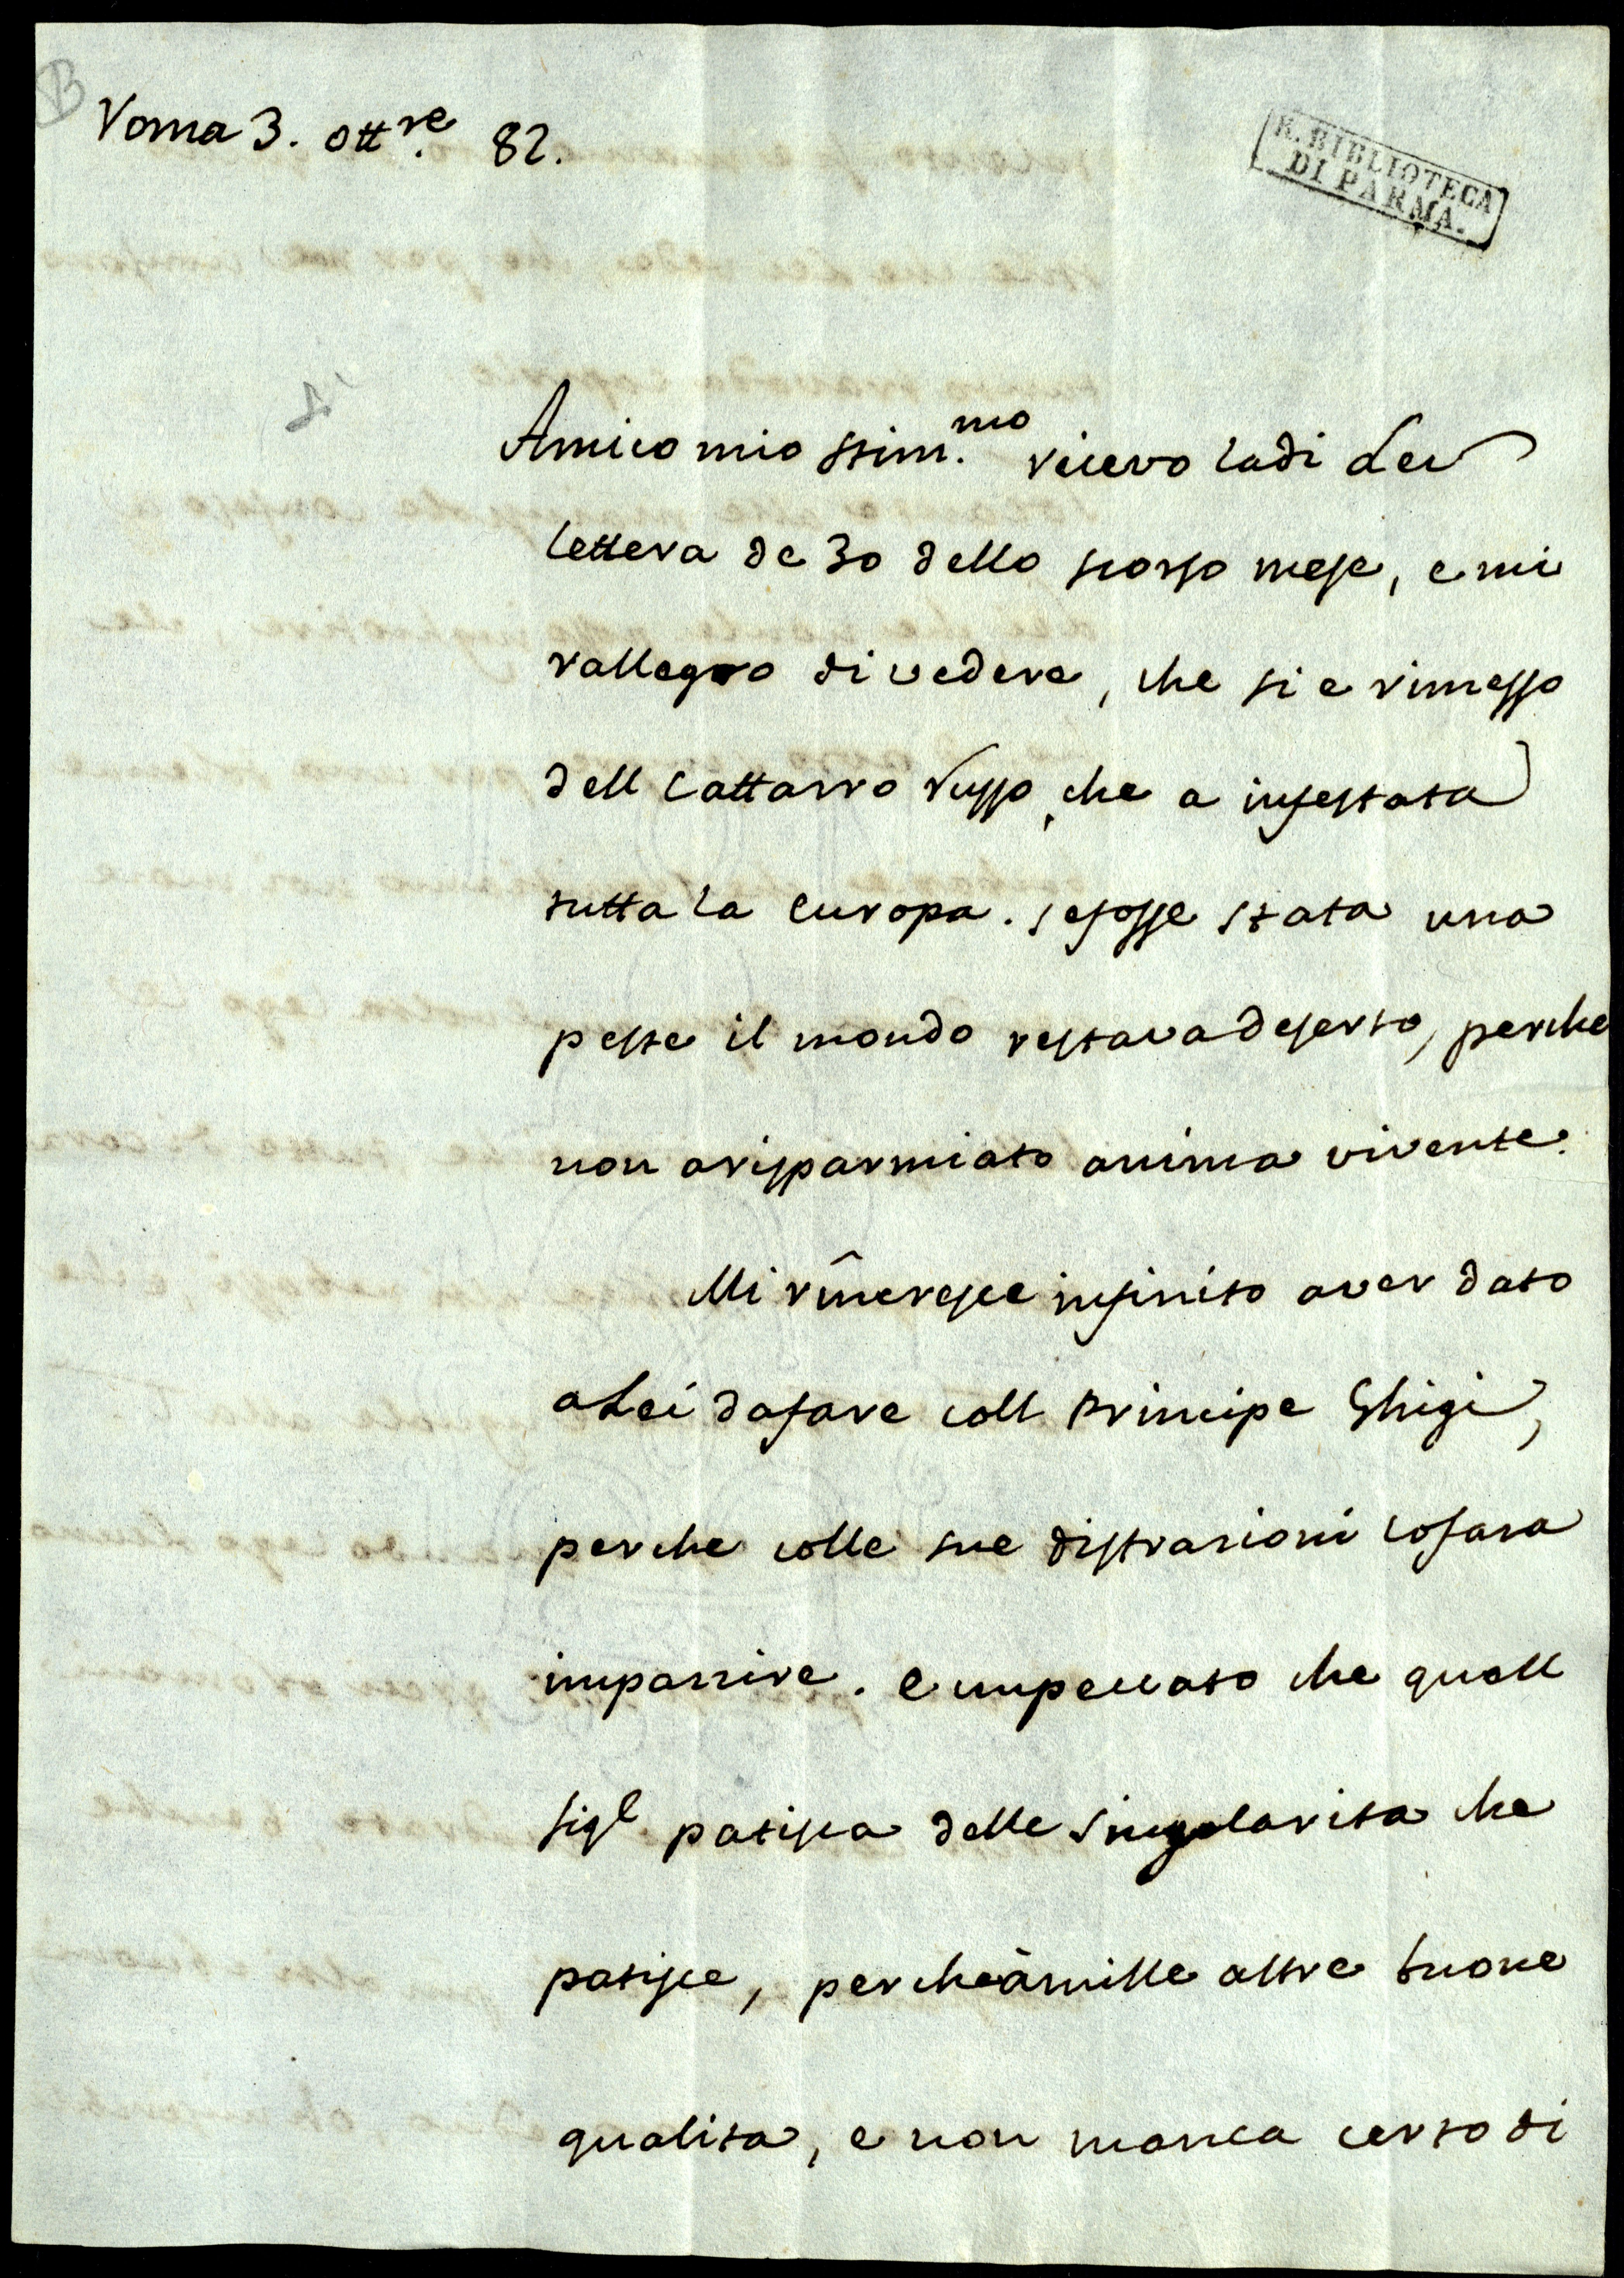 B
Roma 3. ott.re 82.
R. BIBLIOTECA
DI PARMA.
Amico mio stim.mo ricevo la di Lei
lettera de 30 dello scorso mese, e mi
rallegro di vedere, che si e rimesso
dell Cattarro Russo, che a infestata
tutta la europa. se fosse stata una
peste il mondo restava deserto, perche
non a risparmiato anima vivente.
Mi rincresce infinito aver dato
a Lei da fare coll Principe Ghigi,
perche colle sue distrazioni lo fara
impazzire. e un peccato che quell
Sig.e patisca delle Singolarita che
patisce, perche à mille altre buone
qualita, e non manca certo di